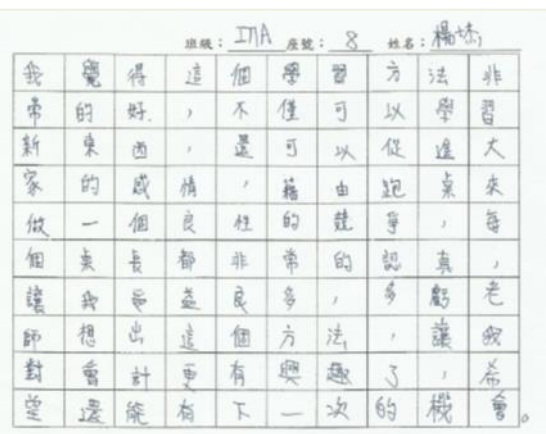 班級：ITIA 座號：8 姓名：楊
我覺得這個學習方法非
常的好，不僅可以學習
新東西，還可以促進大
家的感情，藉由跑桌來
做一個良性的競爭，每
個桌長都非常的認真，
讓我受益良多，多虧老
師想出這個方法，讓我
對會計更有興趣了，希
望還能有下一次的機會。